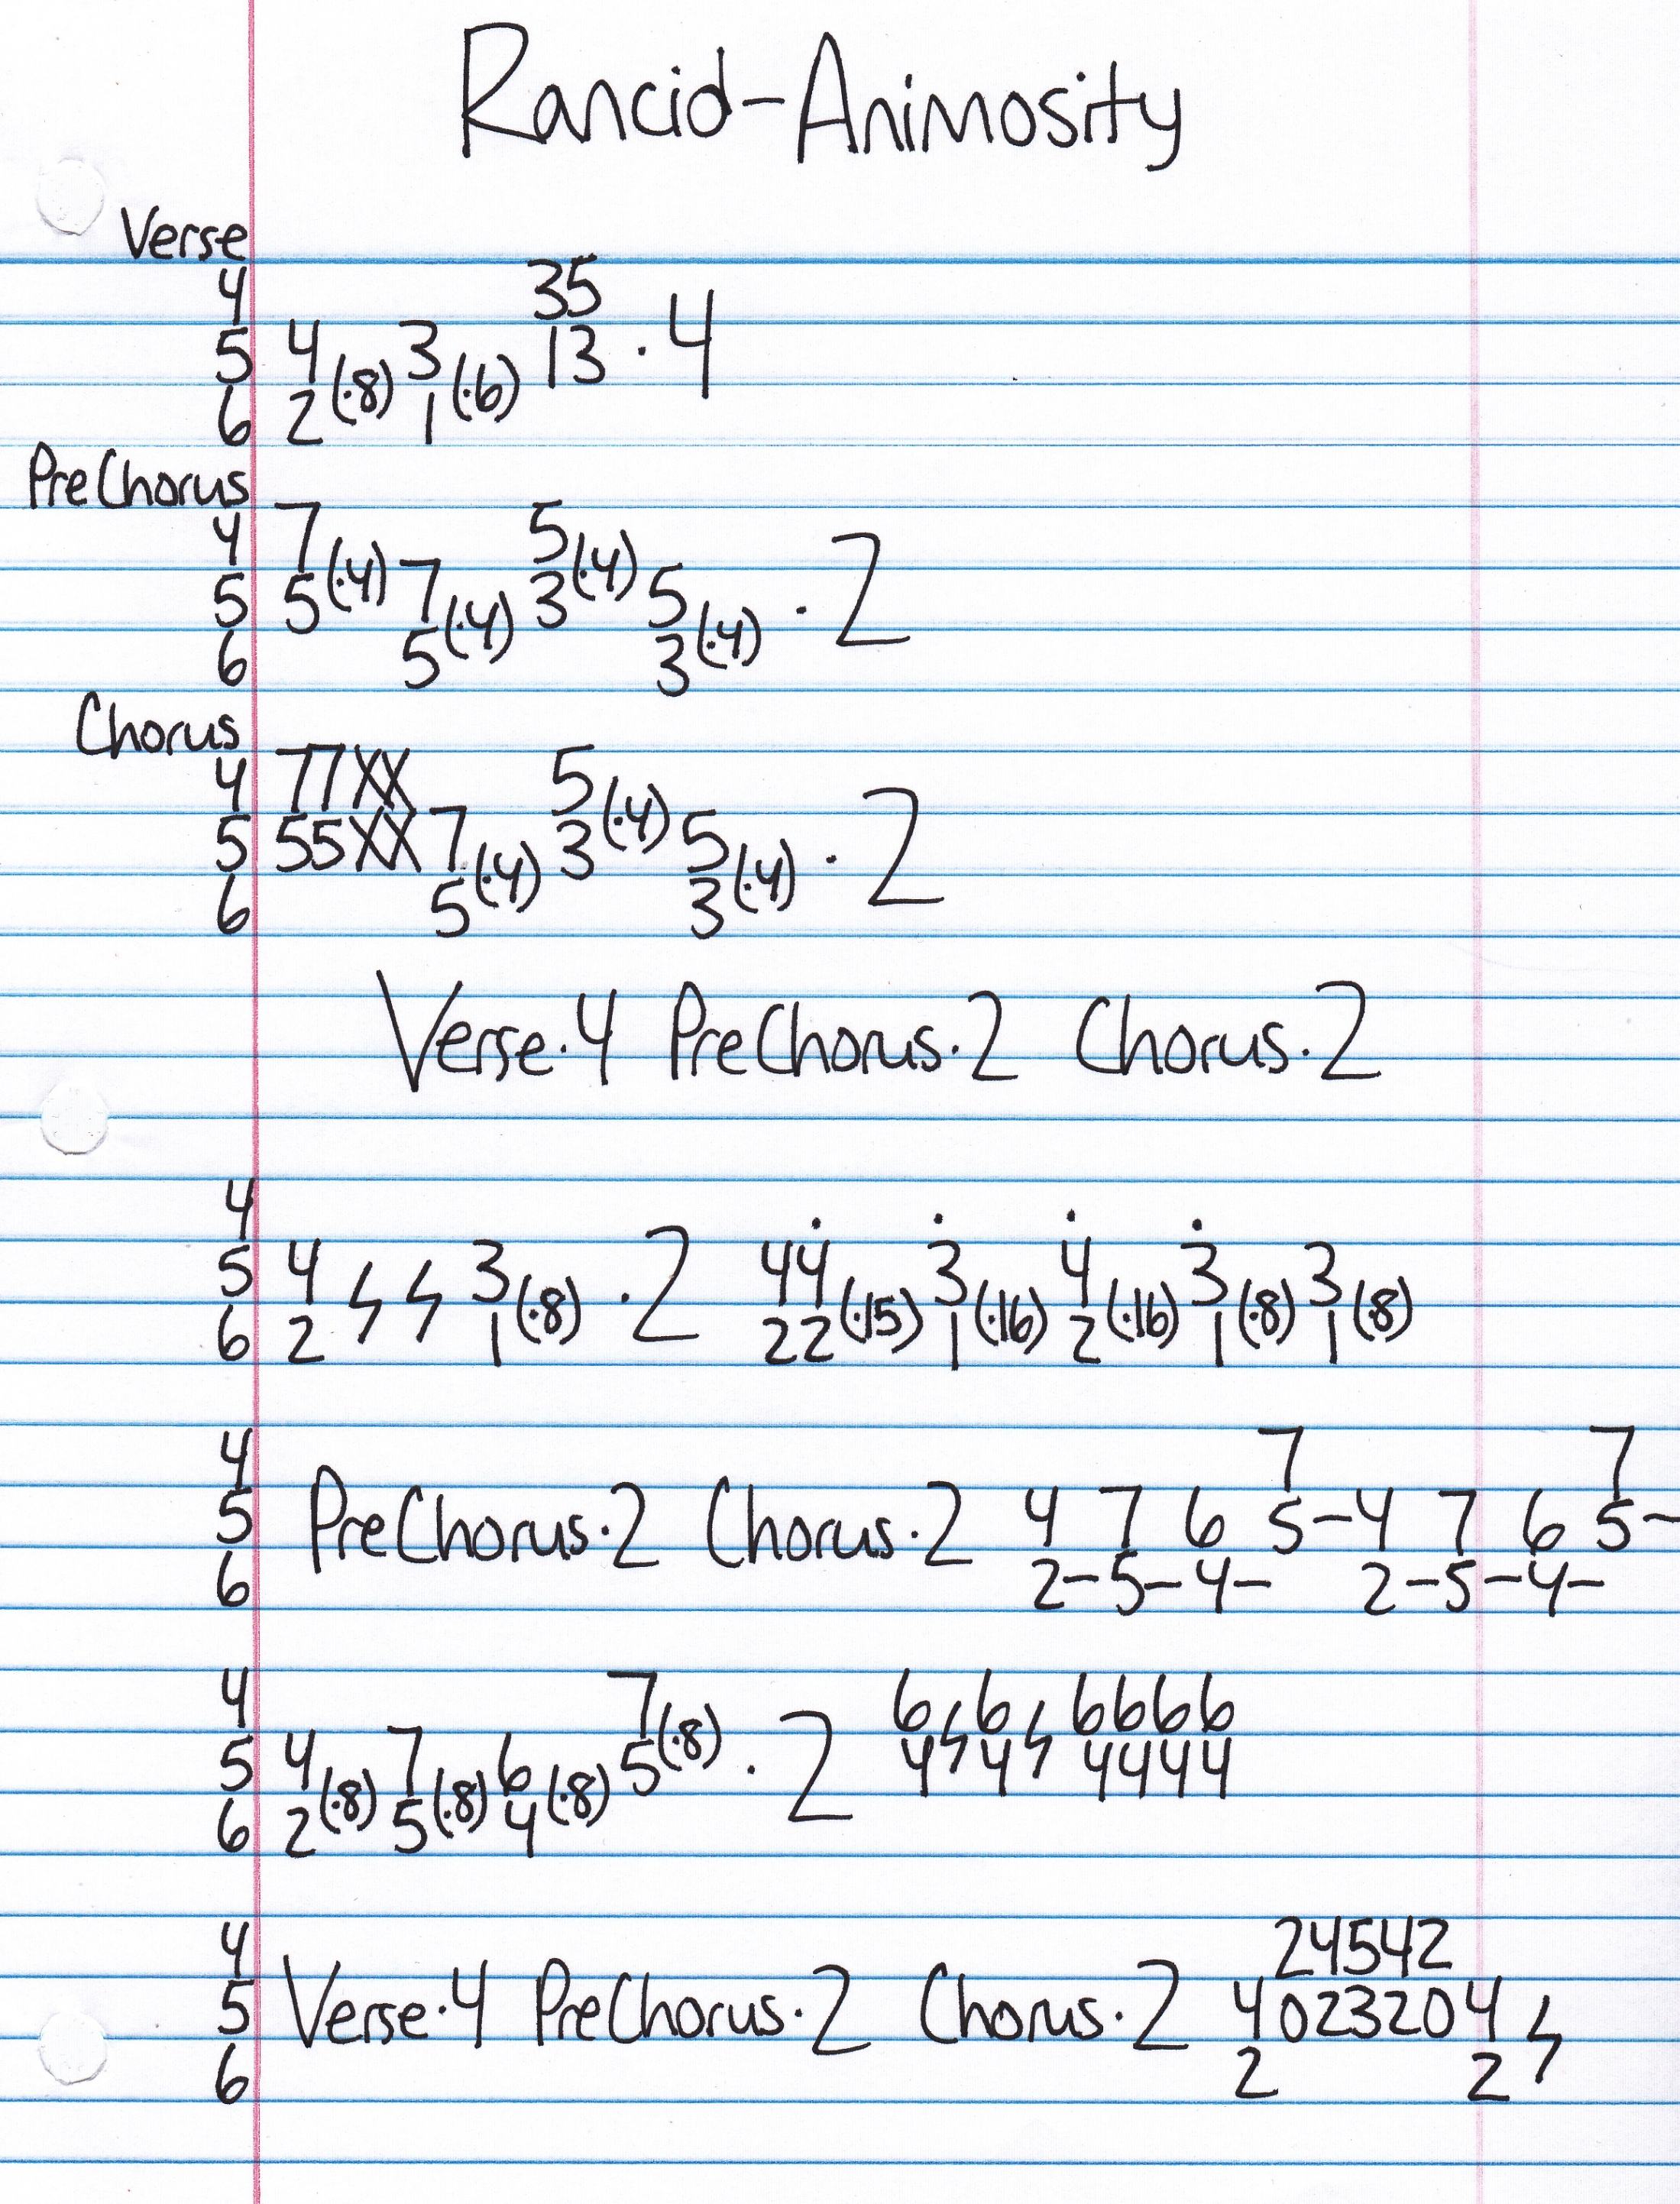 Rancid-Animosity
Verse
4 35
5 4 (·8) 3 (·6) 13 · 4
6 2 1
PreChorus
4 7 (·4) 5 (·4)
5 5 7 (·4) 3 5 (·4) · 2
6 5 3
Chorus
4 77XX 5 (·4)
5 55XX 7 (·4) 3 5 (·4) · 2
6 5 3
Verse·4 PreChorus·2 Chorus·2
4
5 4 3 (·8) · 2 44 (·15) 3 (·16) 4 (·16) 3 (·8) 3 (·8)
6 2 1 22 1 2 1 1
4 7 7
5 PreChorus·2 Chorus·2 4 7 6 5-4 7 6 5-
6 2-5-4- 2-5-4-
4 7 (·8) 6 6 6666
5 4 (·8) 7 (·8) 6 (·8) 5 · 2 4 4 4444
6 2 5 4
4 24542
5 Verse·4 PreChorus·2 Chorus·2 4023204
6 2 2